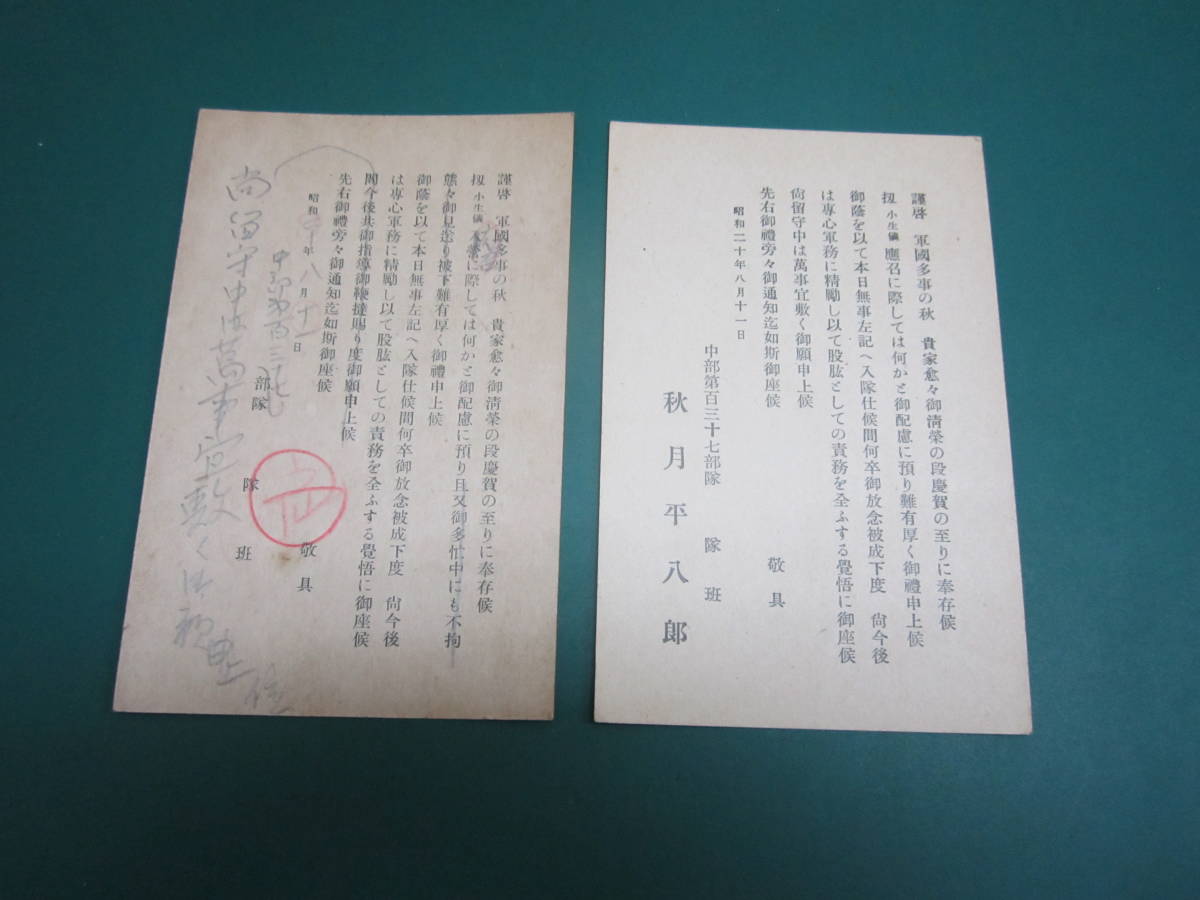 謹啓 軍國多事の秋 貴家愈々御清榮の段慶賀の至りに奉存候
扨小生儀應召に際しては何かと御配慮に預り難有厚く御禮申上候
御蔭を以て本日無事左記へ入隊仕候間何卒御放念被成下度 尙今後
は專心軍務に精勵し以て股肱としての責務を全ふする覺悟に御座候
尙留守中は萬事宜敷く御願申上候
先右御禮旁々御通知迄如斯御座候
敬具
昭和二十年八月十一日
中部第百三十七部隊 隊 班
秋月平八郎
謹啓 軍國多事の秋 貴家愈々御清榮の段慶賀の至りに奉存候
扨小生儀に際しては何かと御配慮に預り且又御多忙中にも不拘
態々御見送り被下難有厚く御禮申上候
御蔭を以て本日無事左記へ入隊仕候間何卒御放念被成下度 尙今後
は專心軍務に精勵し以て股肱としての責務を全ふする覺悟に御座候
間今後共御指導御鞭撻賜り度御願申上候
先右御禮旁々御通知迄如斯御座候
敬具
昭和 年八月十一日
中部第百三十七
部隊 隊 班
尚留守中は萬事宜敷く御願申上候